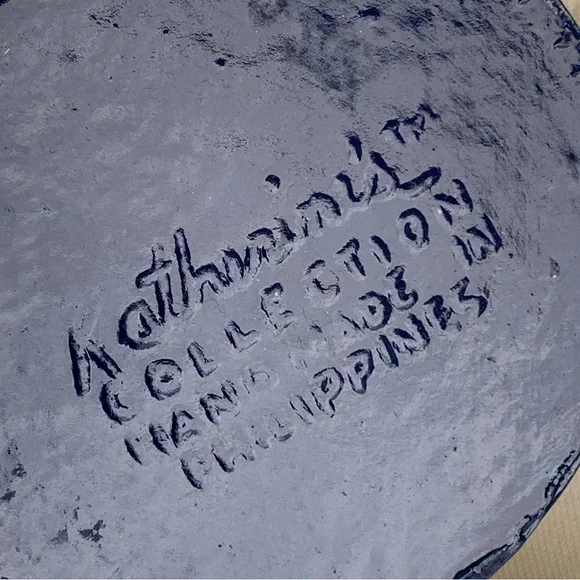 Katherine's™
COLLECTION
HANDMADE IN
PHILIPPINES